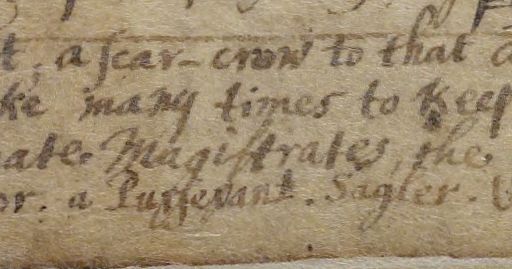 t, a ſcar-crow to that
ke many times to keep
nate Magiſtrates, the
or. a Purſevant. Jagler.